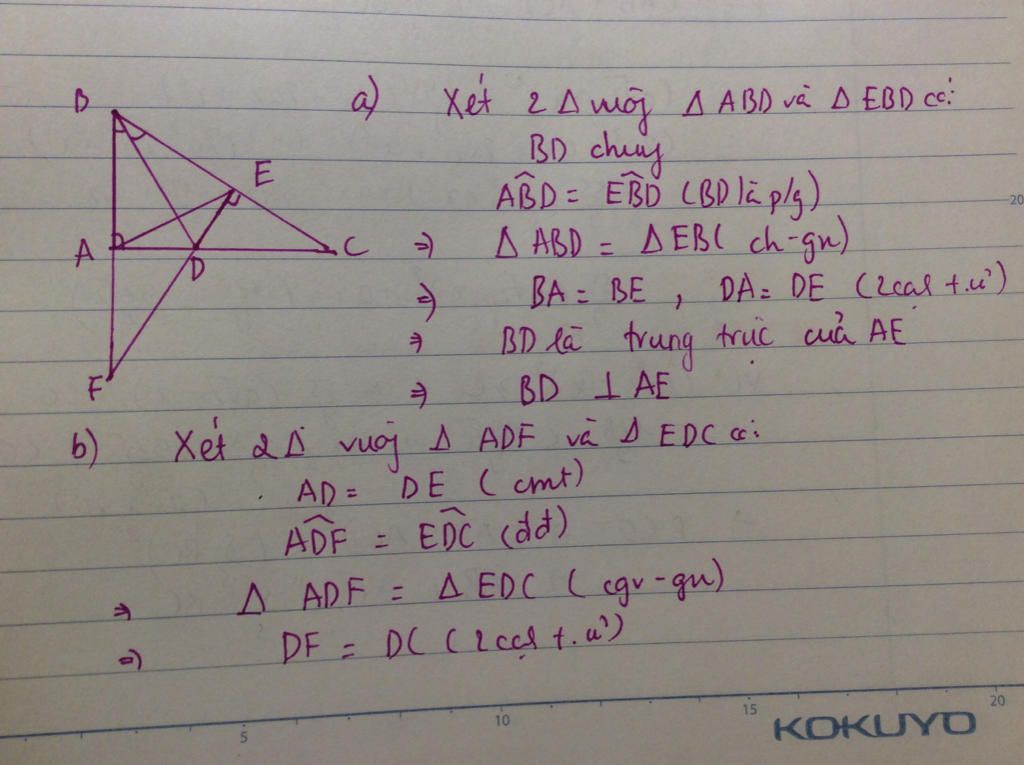 B
E
A
D
C
F
a) Xét 2 Δ vuôg Δ ABD và Δ EBD có:
BD chug
ABD̂ = EBD̂ (BD là p/g)
⇒ Δ ABD = Δ EB( ch-gn)
⇒ BA = BE , DA = DE (2 cạh t.ư)
⇒ BD là trung trực của AE
⇒ BD ⊥ AE
b) Xét 2 Δ vuôg Δ ADF và Δ EDC có:
AD = DE ( cmt)
ADF̂ = EDĈ (đđ)
⇒ Δ ADF = Δ EDC ( cgv - gn)
⇒ DF = DC ( 2 cạh t.ư)
20
5 10 15 20
KOKUYO